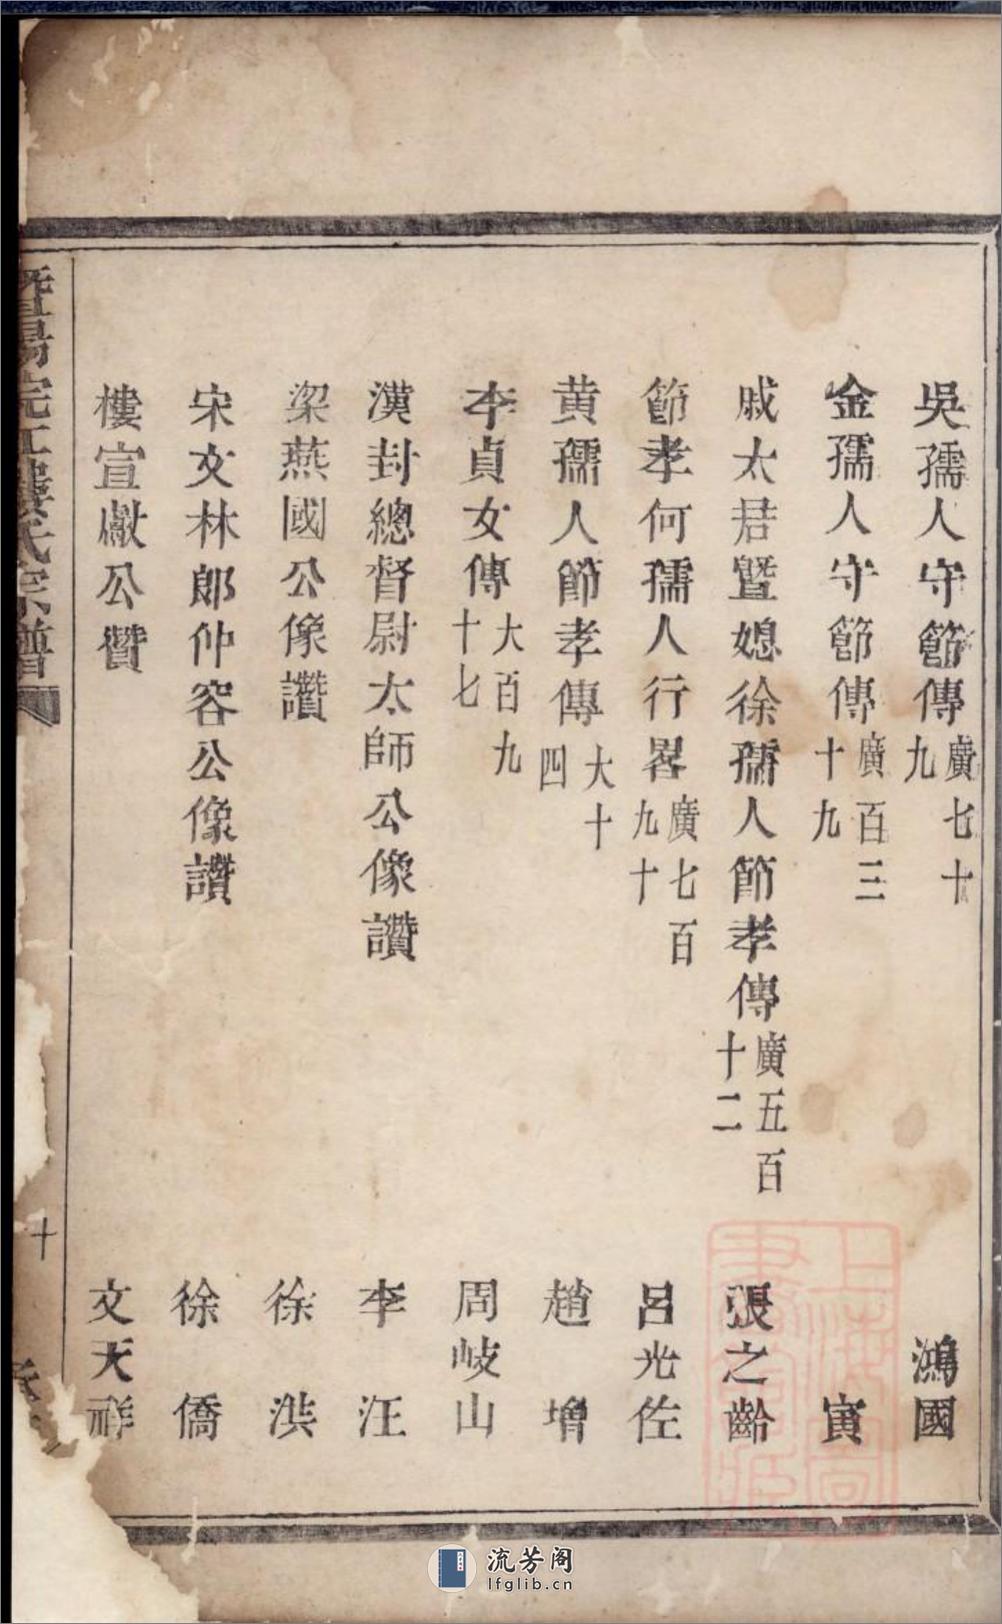 吳孺人守節傳廣七十九 鴻國
金孺人守節傳廣百三十九 寅
戚太君暨媳徐孺人節孝傳廣五百十二 張之齡
節孝何孺人行畧廣七百九十 呂光佐
黄孺人節孝傳大十四 趙增
李貞女傳大百九十七 周岐山
漢封總督尉太師公像讚 李汪
梁燕國公像讚 徐洪
宋文林郎仲容公像讚 徐僑
樓宣獻公贊 文天祥
暨陽浣江樓氏宗譜
十
流芳阁
lfglib.cn